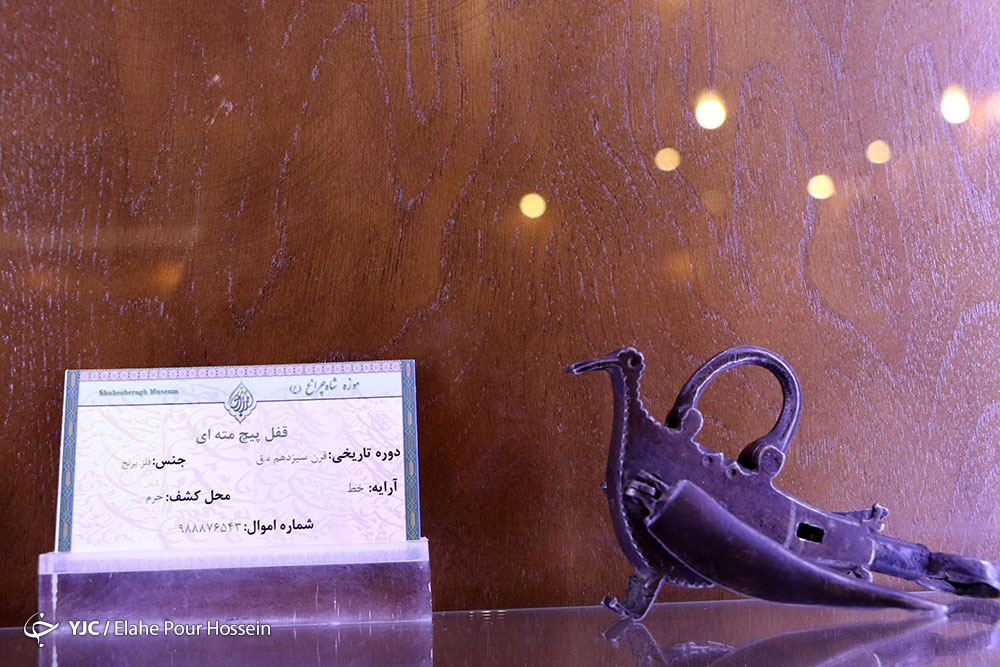 موزه شاهچراغ (ع)
Shahecheragh Museum
قفل پیچ مته ای
دوره تاریخی: قرن سیزدهم ه.ق
جنس: فلز برنج
آرایه: خط
محل کشف: حرم
شماره اموال: ۹۸۸۸۷۶۵۴۳
YJC / Elahe Pour Hossein